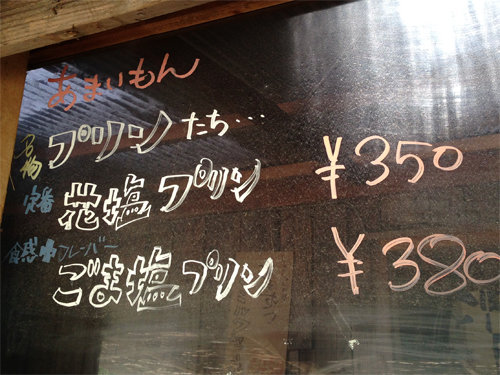 あまいもん
プリンたち…
定番 花塩プリン ¥350
食感＋フレーバー
ごま塩プリン ¥380